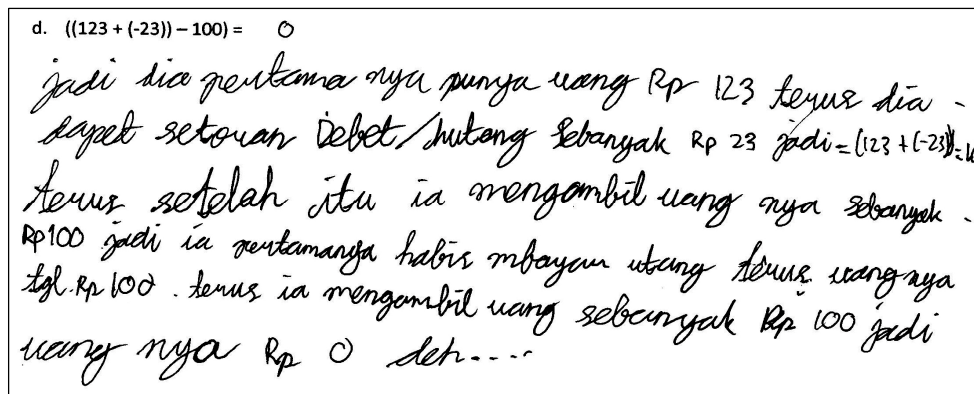 d. ((123 + (-23)) – 100) = 0
jadi dia pertama nya punya uang Rp 123 terus dia -
dapet setoran Debet/hutang sebanyak Rp 23 jadi = (123 + (-23)) = 10
terus setelah itu ia mengambil uang nya sebanyak -
Rp100 jadi ia pertamanya habis mbayar utang terus uangnya
tgl. Rp 100. terus ia mengambil uang sebanyak Rp 100 jadi
uang nya Rp 0 deh....